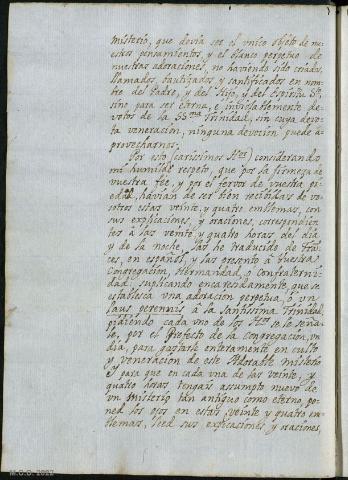 misterio, que devia ser el vnico objeto de nu-
estros pensamientos, y el blanco perpetuo de
nuestras adoraciones, no haviendo sido criados,
llamados, bautizados y santificados en nom-
bre del Padre, y del Hijo, y del Espiritu Sto
sino para ser eterna, e inviolablemente de-
votos de la SSma Trinidad, sin cuya devo-
ta veneracion, ninguna devocion puede a-
provecharnos.
Por esto (carissimos Hos) considerando
mi humilde respeto, que por la firmeza de
vuestra fée, y por el fervor de vuestra pie-
dad, havian de ser bien recibidas de vo-
sotros estas veinte, y quatro emblemas, con
sus explicaciones, y oraciones, correspondien-
tes à las veinte, y quatro horas del dia
y de la noche, las he traducido de Fran-
ces, en español, y las presento à vuestra
Congregacion, Hermandad, o Confraterni-
dad, suplicando encarecidamente, que se
establesca una adoracion perpetua, ò vn
laus perennis à la Santissima Trinidad,
pidiendo cada vno de los Hos se le seña-
le, por el Prefecto de la congregacion, vn
dia, para gastarle enteramente en culto
y veneracion de este Adorable misterio
y para que en cada vna de las veinte, y
quatro horas tengais assumpto nuevo de
vn Misterio tan antiguo como eterno, po-
ned los ojos en estas veinte y quatro em-
blemas, leed sus explicaciones y oraciones,